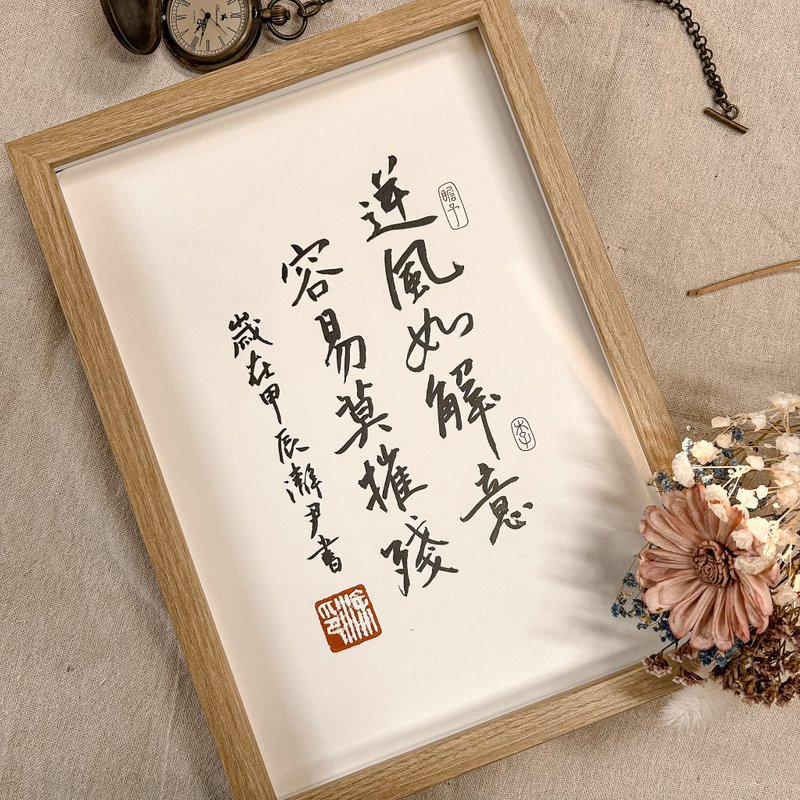 逆風如解意
容易莫摧殘
歲在甲辰尹書
李